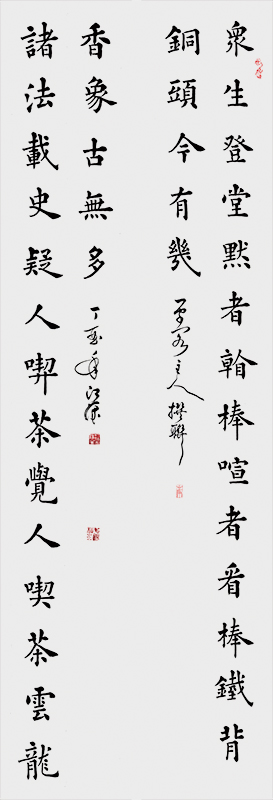 眾生登堂默者看棒喧者看棒鐵背
銅頭今有幾
主人撰聯
諸法載史疑人喫茶覺人喫茶雲龍
香象古無多
丁酉年